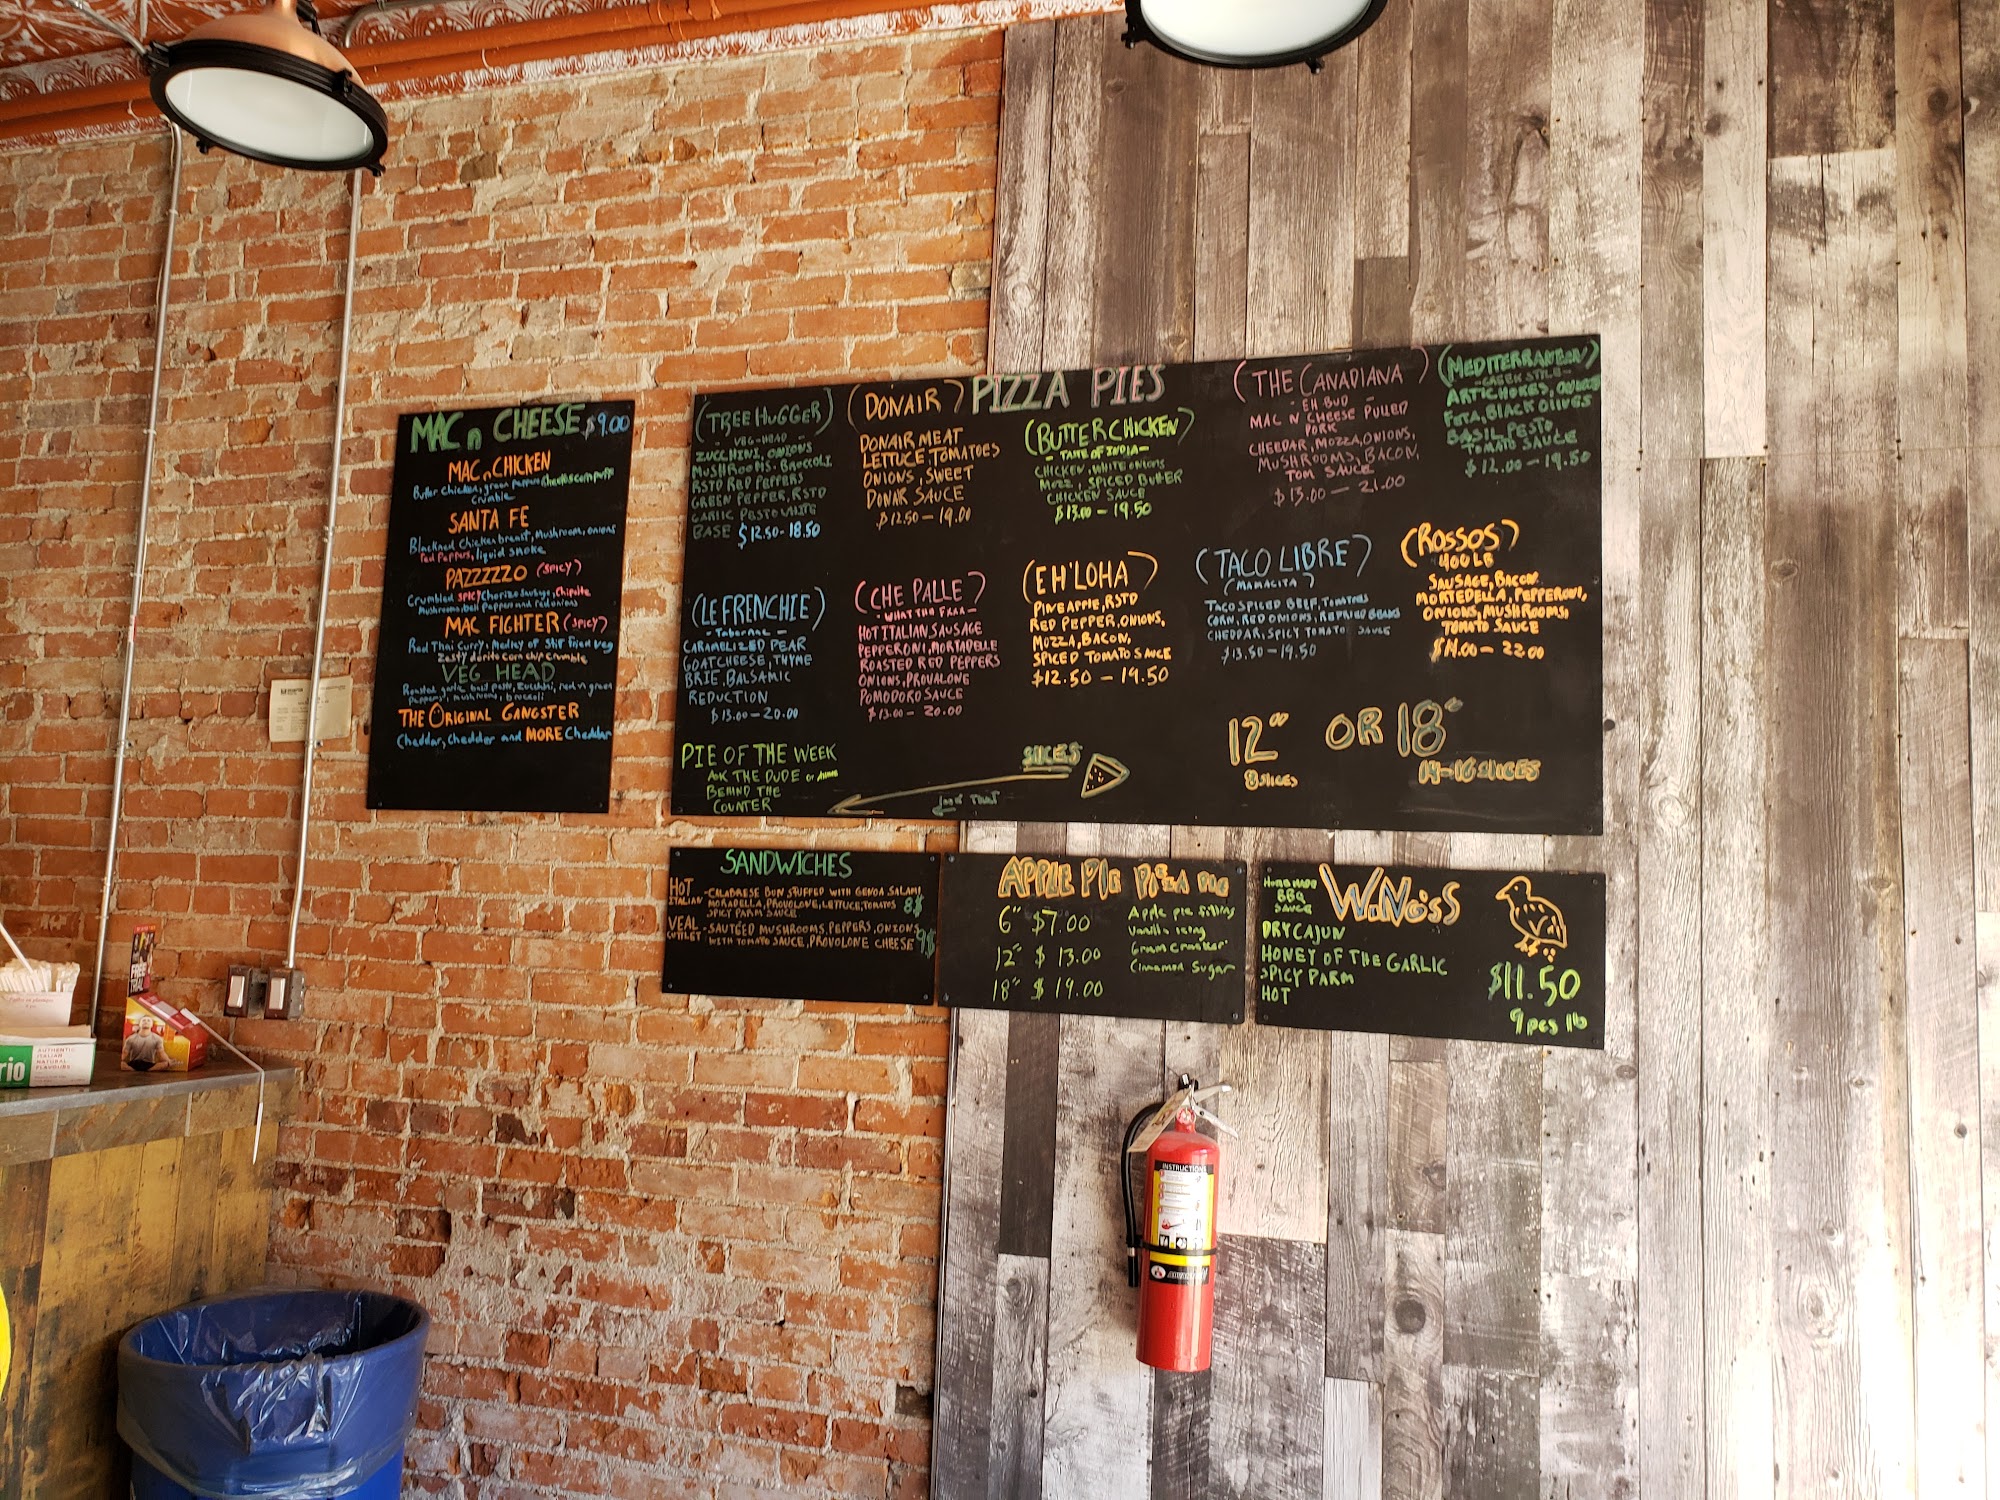 MAC n CHEESE $9.00
MAC n CHICKEN
Butter Chicken, green peppers
Crumble
SANTA FE
Blackned Chicken breast, Mushroom, onions
red Peppers, liquid smoke
PAZZZZZO (SPICY)
Crumbled SPICY Chorizo Sausage, Chipotle
Mushrooms, bell Peppers and red onions
MAC FIGHTER (SPICY)
Red Thai Curry, Medley of Stif fried veg
zesty dorito corn chip crumble
VEG HEAD
Roasted garlic basil pesto, Zucchini, red n green
peppers, mushrooms, broccoli
THE ORIGINAL GANGSTER
Cheddar, Cheddar and MORE Cheddar
PIZZA PIES
(TREE HUGGER)
- VEG-HEAD -
ZUCCHINI, ONIONS
MUSHROOMS, BROCCOLI
RSTD RED PEPPERS
GREEN PEPPER, RSTD
GARLIC PESTO WHITE
BASE $12.50-18.50
(DONAIR)
DONAIR MEAT
LETTUCE TOMATOES
ONIONS, SWEET
DONAIR SAUCE
$12.50 - 19.00
(BUTTER CHICKEN)
- TASTE OF INDIA -
CHICKEN, WHITE ONIONS
MOZZ, SPICED BUTTER
CHICKEN SAUCE
$13.00 - 19.50
(THE CANADIANA)
- EH BUD -
MAC N CHEESE PULLED
PORK
CHEEDAR, MOZZA, ONIONS,
MUSHROOMS, BACON,
TOM SAUCE
$13.00 - 21.00
(MEDITERRANEAN)
- GREEK STYLE -
ARTICHOKES, ONIONS
FETA, BLACK OLIVES
BASIL PESTO
TOMATO SAUCE
$12.00 - 19.50
(LE FRENCHIE)
- Tabernac -
CARAMELIZED PEAR
GOATCHEESE, THYME
BRIE, BALSAMIC
REDUCTION
$13.00 - 20.00
(CHE PALLE)
HOT ITALIAN SAUSAGE
PEPPERONI, MORTADELLE
ROASTED RED PEPPERS
ONIONS, PROVALONE
POMODORO SAUCE
$13.00 - 20.00
(EH'LOHA)
PINEAPPLE, RSTD
RED PEPPER, ONIONS,
MOZZA, BACON,
SPICED TOMATO SAUCE
$12.50 - 19.50
(TACO LIBRE)
(MAMACITA)
TACO SPICED BEEF, TOMATOES
CORN, RED ONIONS, REFRIED BEANS
CHEDDAR, SPICY TOMATO SAUCE
$13.50 - 19.50
(ROSSOS)
SAUSAGE, BACON
MORTEDELLA, PEPPERONI,
ONIONS, MUSHROOMS,
TOMATO SAUCE
$14.00 - 22.00
PIE OF THE WEEK
ASK THE DUDE OR
BEHIND THE
COUNTER
SLICES
12" OR 18"
8 SLICES
14-16 SLICES
SANDWICHES
HOT ITALIAN - CALABRESE BUN STUFFED WITH GENOA SALAMI
MORADELLA, PROVOLONE, LETTUCE, TOMATOS 8$
SPICY PARM SAUCE
VEAL CUTLET - SAUTEED MUSHROOMS, PEPPERS, ONIONS
WITH TOMATO SAUCE, PROVOLONE CHEESE 9$
APPLE PIE PIZZA PIE
6" $7.00
12" $13.00
18" $19.00
Apple pie filling
Vanilla icing
Gram cracker
Cinnamon Sugar
WiNGs'S
HOMEMADE
BBQ
SAUCE
DRY CAJUN
HONEY OF THE GARLIC
SPICY PARM
HOT
$11.50
9 pcs lb
INSTRUCTIONS
FREE
TRIAL
rio
AUTHENTIC
ITALIAN
NATURAL
FLAVOURS